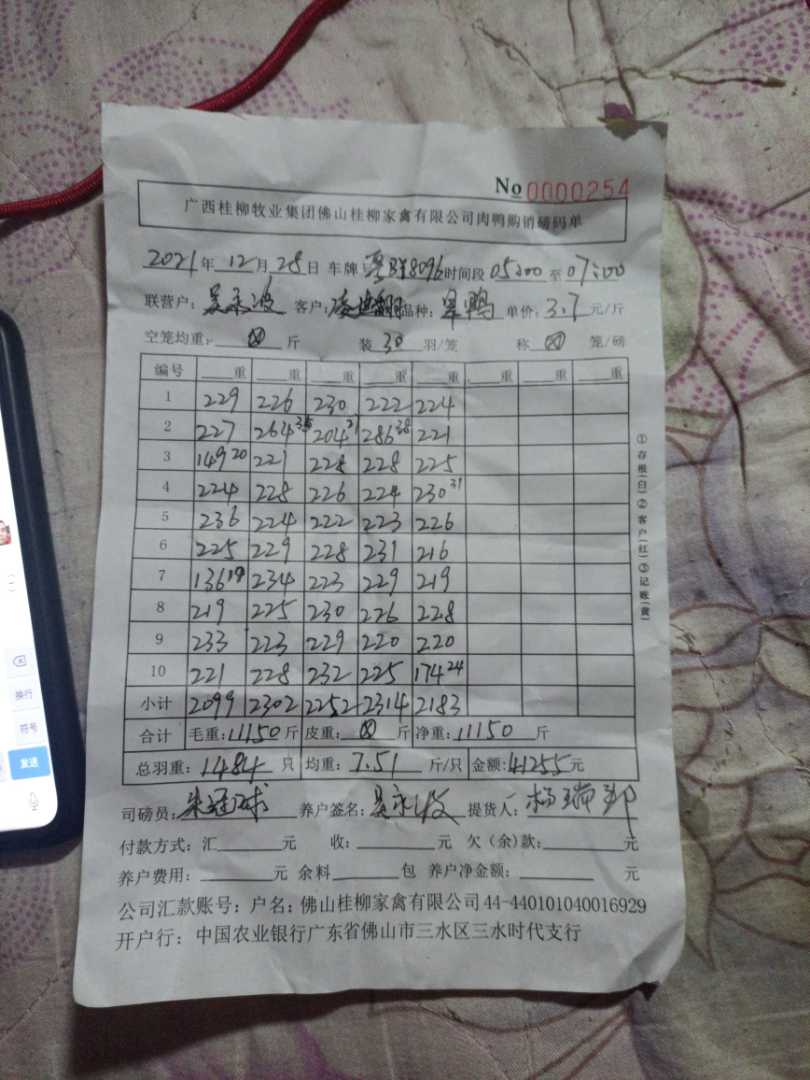 No 0000254
广西桂柳牧业集团佛山桂柳家禽有限公司肉鸭购销磅码单
2021年12月28日 车牌 8096 时间段 05:00 至 07:00
联营户: 吴永波 客户: 品种: 旱鸭 单价: 3.7 元/斤
空笼均重: 斤 装 30 羽/笼 称 笼/磅
编号 重 重 重 重 重 重 重 重
1 229 226 230 222 224
2 227 264 204 286 38 221
3 149 20 221 228 228 225
4 224 228 226 224 230 31
5 236 224 222 223 226
6 225 229 228 231 216
7 136 19 234 223 229 219
8 219 225 230 226 228
9 233 223 229 220 220
10 221 228 232 225 174 24
小计 2099 2302 2252 2314 2183
合计 毛重: 11150 斤 皮重: 斤 净重: 11150 斤
总羽重: 1484 只 均重: 7.51 斤/只 金额: 41255 元
司磅员: 养户签名: 吴永波 提货人: 杨瑞邦
付款方式: 汇 元 收: 元 欠(余)款: 元
养户费用: 元 余料 包 养户净金额: 元
公司汇款账号: 户名: 佛山桂柳家禽有限公司 44-440101040016929
开户行: 中国农业银行广东省佛山市三水区三水时代支行
①存根(白)②客户(红)③记账(黄)
换行
符号
发送